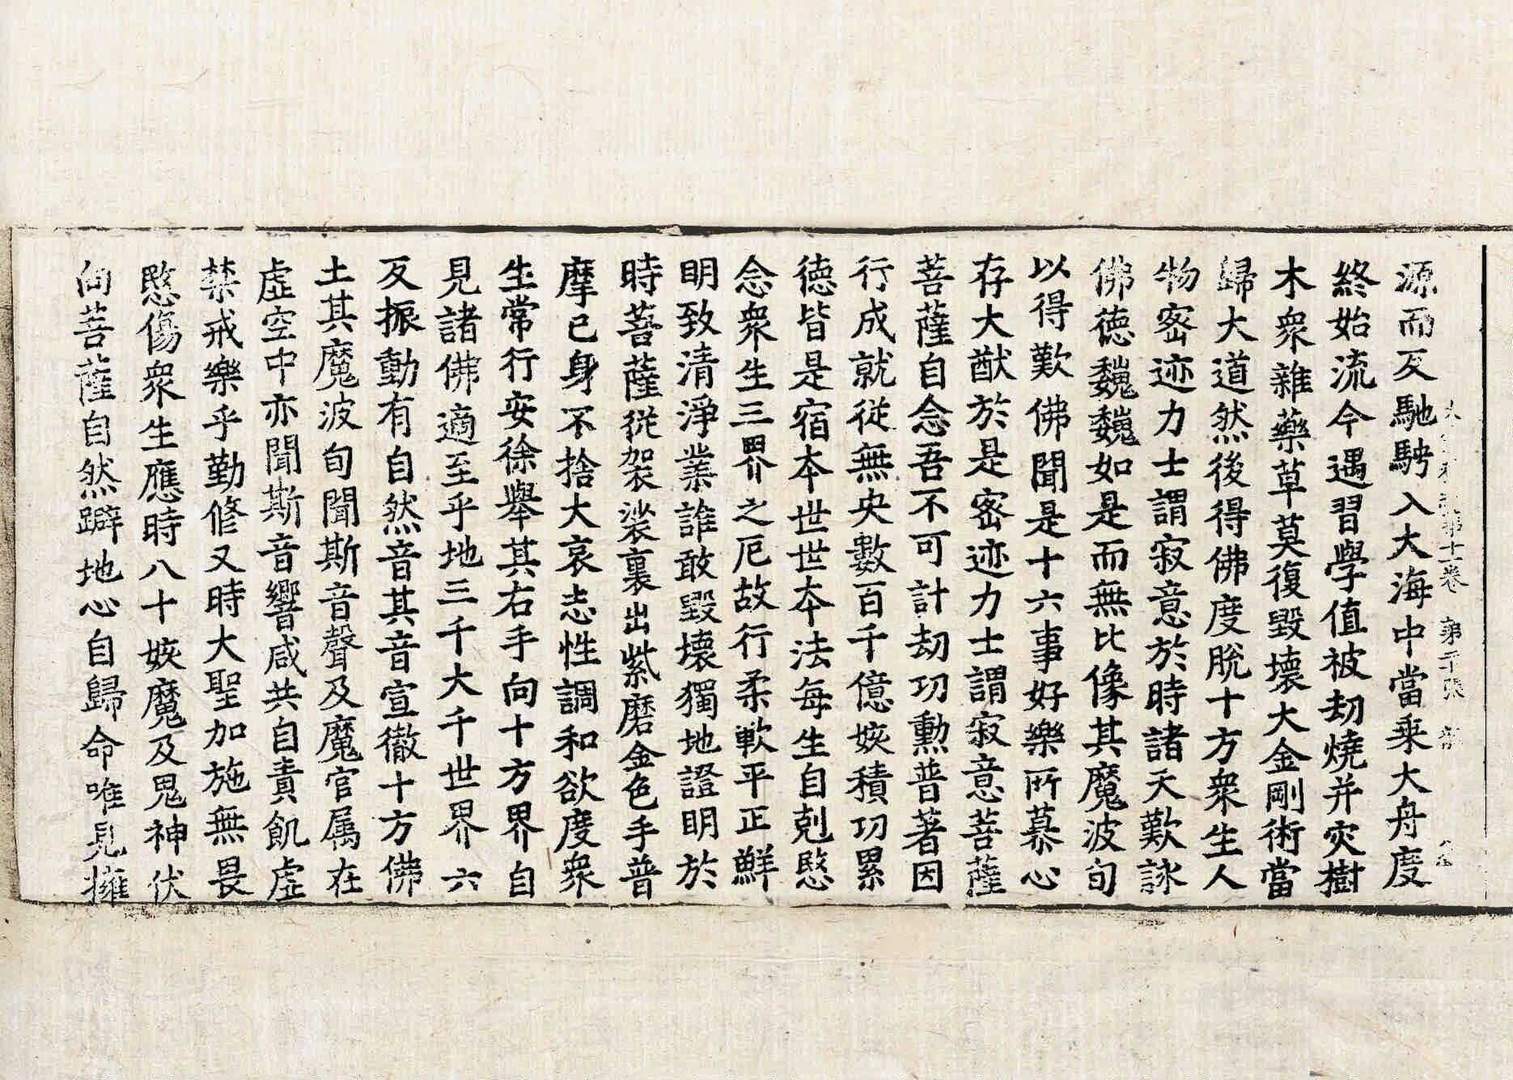 源而反馳騁入大海中當乘大舟度
終始流今遇習學值被劫燒并灾樹
木衆雜藥草莫復毀壞大金剛術當
歸大道然後得佛度脫十方衆生人
物密迹力士謂寂意於時諸天歎詠
佛德巍巍如是而無比像其魔波旬
以得歎佛聞是十六事好樂所慕心
存大猷於是密迹力士謂寂意菩薩
菩薩自念吾不可計劫功勳普著因
行成就從無央數百千億姟積功累
德皆是宿本世世本法每生自剋愍
念衆生三界之厄故行柔軟平正鮮
明致清淨業誰敢毀壞獨地證明於
時菩薩從袈裟裏出紫磨金色手普
摩已身不捨大哀志性調和欲度衆
生常行安徐舉其右手向十方界自
見諸佛適至乎地三千大千世界六
反振動有自然音其音宣徹十方佛
土其魔波旬聞斯音聲及魔官属在
虛空中亦聞斯音響咸共自責飢虛
禁戒樂乎勤修又時大聖加施無畏
愍傷衆生應時八十姟魔及鬼神伏
向菩薩自然躃地心自歸命唯見擁